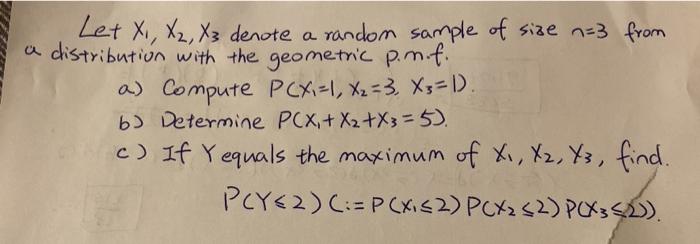 Let X₁, X₂, X₃ denote a random sample of size n=3 from
a distribution with the geometric p.m.f.
a) Compute P(X₁=1, X₂=3, X₃=1).
b) Determine P(X₁+X₂+X₃=5).
c) If Y equals the maximum of X₁, X₂, X₃, find.
P(Y≤2) (:= P(X₁≤2) P(X₂≤2) P(X₃≤2)).